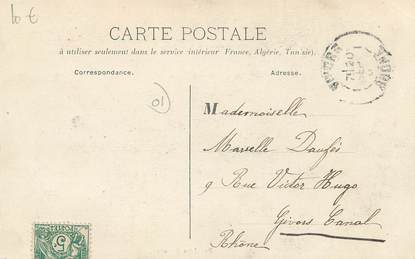 10 €
CARTE POSTALE
à utiliser seulement dans le service intérieur (France, Algérie, Tunisie).
Correspondance.
Adresse.
01
Mademoiselle
Marselle
9 Rue Victor Hugo
Givors Canal
Rhône
5